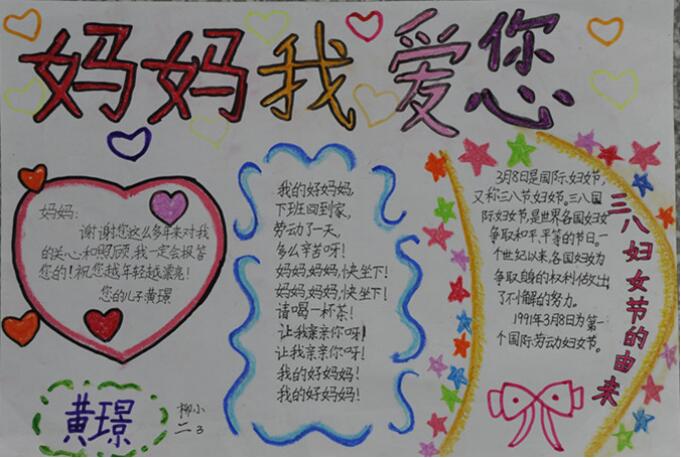 妈妈我爱您
妈妈:
谢谢您这么多年来对我
的关心和照顾,我一定会报答
您的!祝您越年轻越漂亮!
您的儿子黄璟
黄璟
柳小
二3
我的好妈妈,
下班回到家,
劳动了一天,
多么辛苦呀!
妈妈,妈妈,快坐下!
妈妈,妈妈,快坐下!
请喝一杯茶!
让我亲亲你呀!
让我亲亲你呀!
我的好妈妈!
我的好妈妈!
3月8日是国际妇女节,
又称三八节,妇女节。三八国
际妇女节,是世界各国妇女
争取和平、平等的节日。一
个世纪以来,各国妇女为
争取自身的权利做出
了不懈的努力。
1991年3月8日为第一
个国际劳动妇女节。
三八妇女节的由来